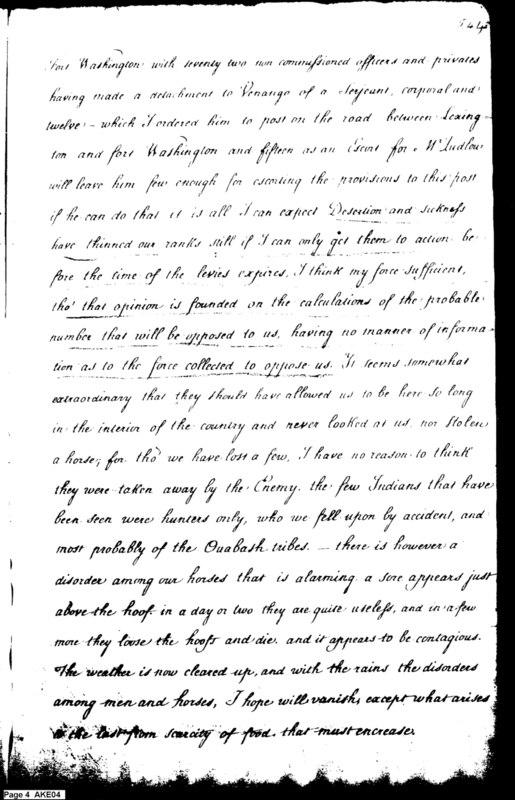 544
Fort Washington with seventy two non commissioned officers and privates
having made a detachment to Venango of a Serjeant, corporal and
twelve – which I ordered him to post on the road between Lexing-
ton and fort Washington and fifteen as an Escort for Mr Ludlow
will leave him few enough for escorting the provisions to this post
if he can do that it is all I can expect Desertion and sickness
have thinned our ranks still if I can only get them to action be-
fore the time of the levies expires, I think my force sufficient,
tho' that opinion is founded on the calculations of the probable
number that will be opposed to us, having no manner of informa-
tion as to the force collected to oppose us. It seems somewhat
extraordinary that they should have allowed us to be here so long
in the interior of the country and never looked at us, nor stolen
a horse, for tho' we have lost a few, I have no reason to think
they were taken away by the Enemy. the few Indians that have
been seen were hunters only, who we fell upon by accident, and
most probably of the Ouabash tribes. – there is however a
disorder among our horses that is alarming a sore appears just
above the hoof in a day or two they are quite useless, and in a few
more they loose the hoofs and die. and it appears to be contagious.
The weather is now cleared up, and with the rains the disorders
among men and horses, I hope will vanish, except what arises
to the last from scarcity of food. that must encrease.
Page 4 AKE04